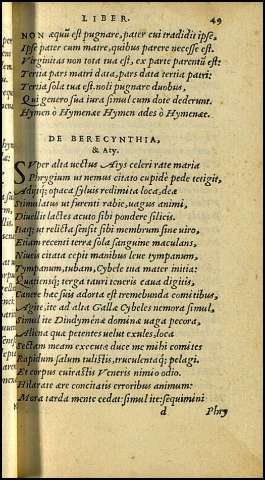 LIBER. 49
NON æquũ est pugnare, pater cui tradidit ipse,
Ipse pater cum matre, quibus parere necesse est.
Virginitas non tota tua est, ex parte parentũ est:
Tertia pars matri data, pars data tertia patri:
Tertia sola tua est. noli pugnare duobus,
Qui genero sua iura simul cum dote dederunt.
Hymen ô Hymenæe Hymen ades ô Hymenæe.
DE BERECYNTHIA,
& Aty.
SVper alta uectus Atys celeri rate maria
Phrygium ut nemus citato cupidè pede tetigit,
Adiitq; opaca syluis redimita loca, deæ
Stimulatus ut furenti rabie, uagus animi,
Diuellit lactes acuto sibi pondere silicis.
Itaq; ut relicta sensit sibi membrum sine uiro,
Et iam recenti terra sola sanguine maculans,
Niueis citata cepit manibus leue tympanum,
Tympanum, tubam, Cybele tua mater initia:
Quatiensq; terga tauri teneris caua digitis,
Canere hæc suis adorta est tremebunda comitibus,
Agite, ite ad alta Gallæ Cybeles nemora simul,
Simul ite Dindymenæ dominæ uaga pecora,
Aliena quæ petentes uelut exules, loca
Sectam meam executæ duce me mihi comites
Rapidum salum tulistis, truculentaq; pelagi.
Et corpus euirastis Veneris nimio odio.
Hilarate æere concitatis erroribus animum:
Mora tarda mente cedat: simul ite: sequimini
d Phry